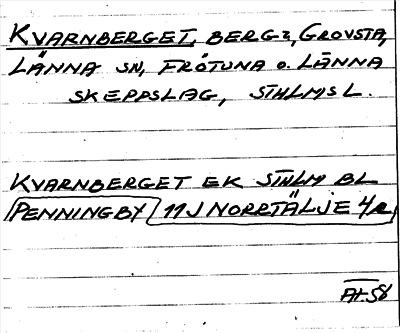 KVARNBERGET, BERG 2, GROVSTA,
LÄNNA SN, FRÖTUNA O. LÄNNA
SKEPPSLAG, STHLMS L.
KVARNBERGET EK STHLM BL
PENNINGBY 11J NORRTÄLJE 4